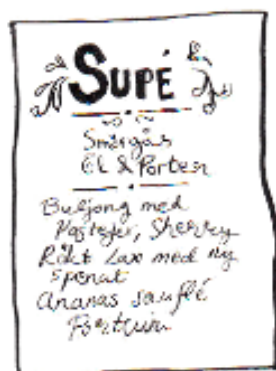 SUPÉ
Smörgås
Öl & Porter
Buljong med
Pastejer, Sherry
Rökt Lax med ny
spenat
Ananas sauflé
Portvin